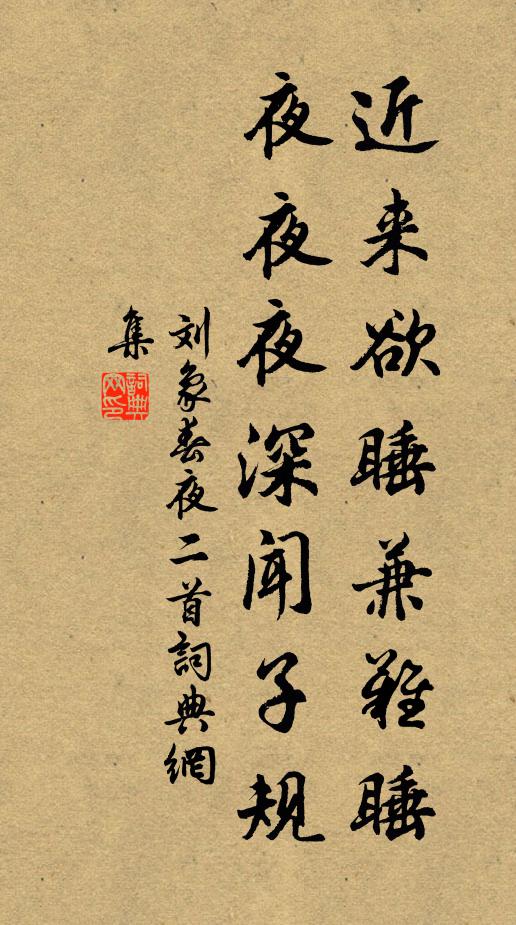 近来欲睡兼难睡
夜夜夜深闻子规
刘象春夜二首詞典網
集
詞典网印